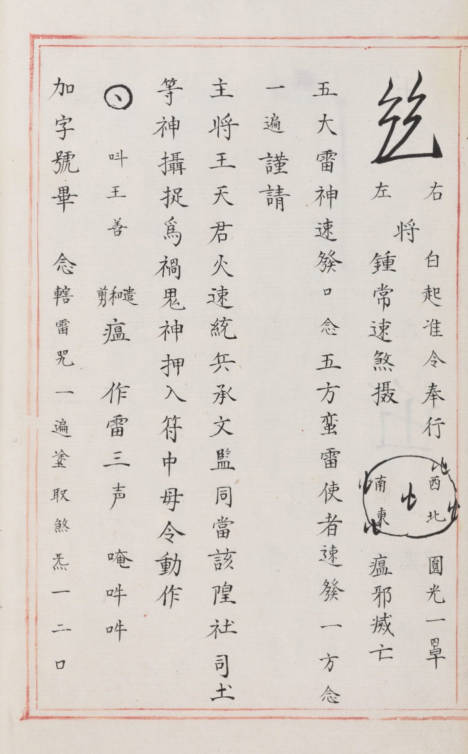 右 白起准令奉行 西北 圓光一罩
將
左 鍾常速煞摄 南東 瘟邪滅亡
五大雷神速發口念五方蛮雷使者速發一方念
一遍謹請
主將王天君火速統兵承文監同當該隍社司土
等神攝捉爲禍鬼神押入符中毋令動作
叫王善 和剪瘟 作雷三声 唵吽吽
加字號畢 念轄雷咒一遍塗取煞炁一二口